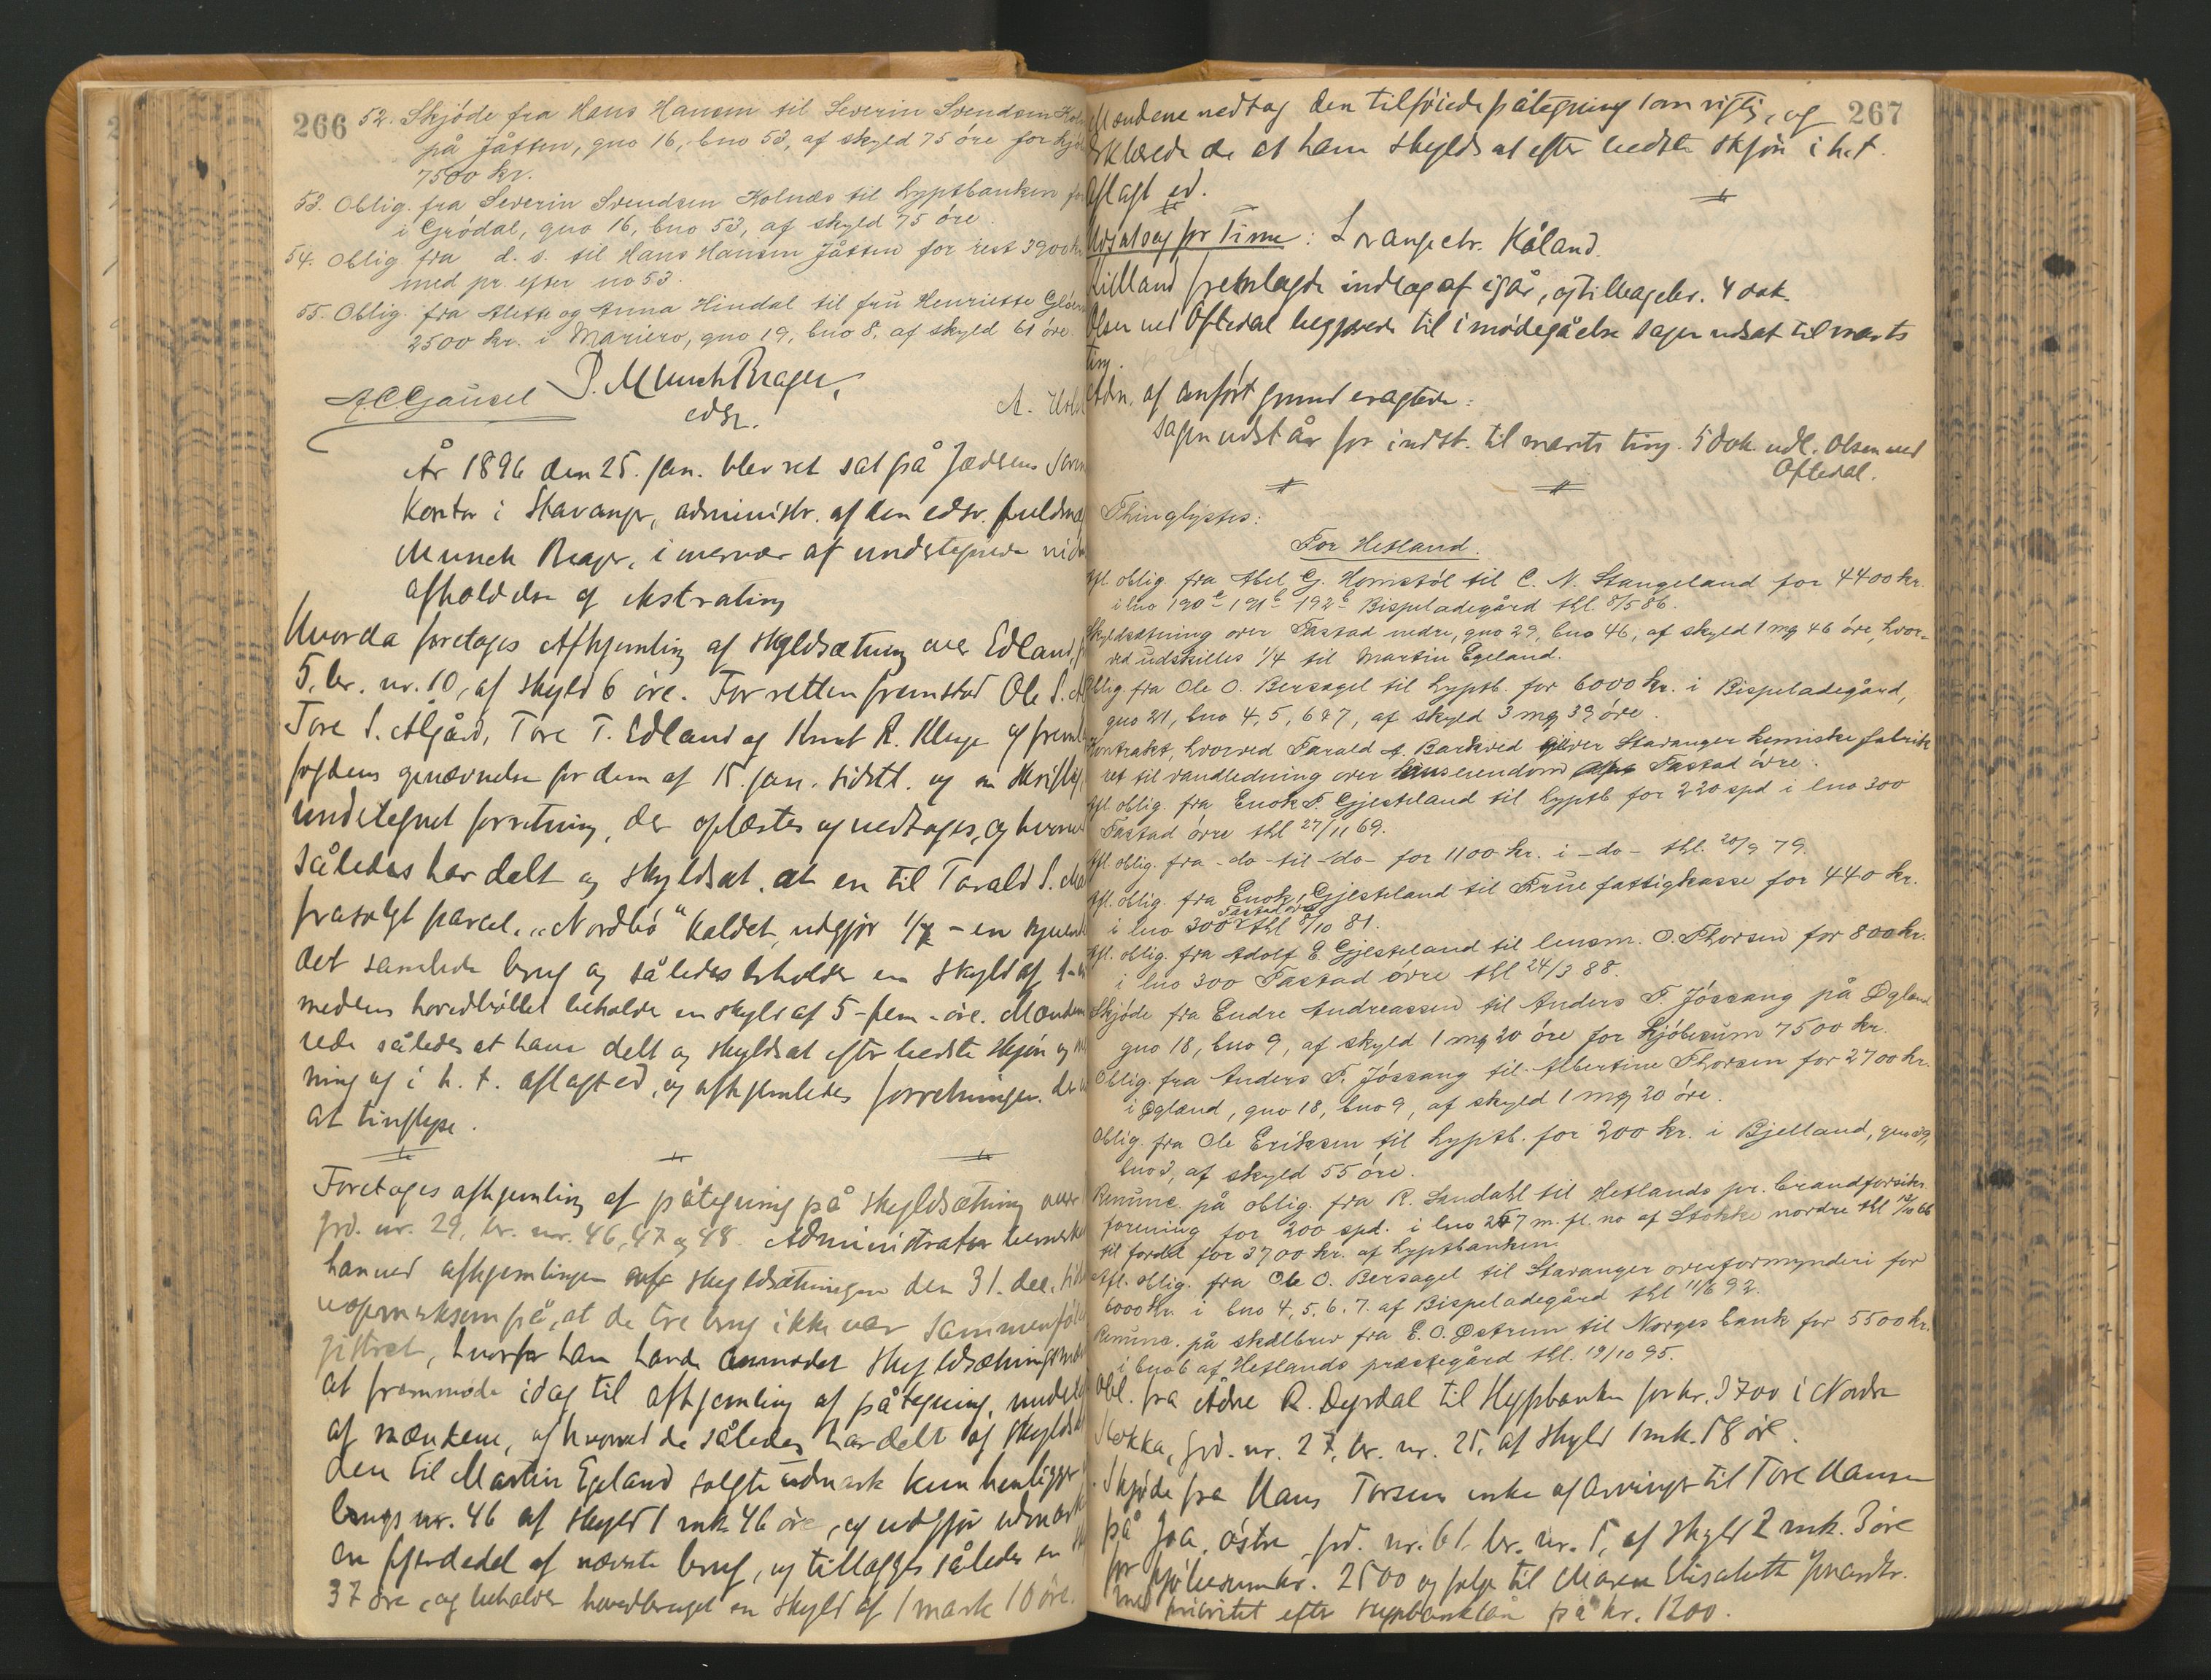 266
52. Skjöde fra Hans Hansen til Severin Svendsen
på Jåtten, gno 16, bno 53, af skyld 75 öre for
7500 kr.
53. Oblig. fra Severin Svendsen Holnæs til Hyptbanken
i Gródal, gno 16, bno 53, af skyld 75 öre.
54. Oblig fra d. s. til Hans Hansen Jåtten for rest 3900
med pr. efter no 53.
55. Oblig. fra Alette og Anna Hindal til fru Henriette
2500 kr. i Mariero, gno 19, bno 8, af skyld 61 öre.
A.C. Gausel P. Munch Brager,
edsv.
År 1896 den 25. jan. blev ret sat på Jædrens
Kontor i Stavanger, administr. af den edsv.
Munch Brager, i nærvær af undertegnede
afholdelse af ekstrating
Hvorda foretages Afhjemling af Skyldsætning over Edland,
5, br. nr. 10, af skyld 6 öre. For retten fremstod Ole S.
Tore S. Ålgård, Tore T. Edland og Knut R. Kluge og
fogdens opnævnelse for dem af 15. jan. sidstl. og en
undertegnet forretning, der oplæstes og vedtoges, og
således har delt og skyldsat, at en til Torald S.
frasolgt parcel, "Nordbö" kaldet, udgjör
det samlede brug og således beholder en skyld af
medens hovedböllet beholder en skyld af 5 - fem - öre.
rede således at have delt og skyldsat efter bedste skjön og
ning og i h. t. aflagt ed, og afhjemledes forretningen
at tinglyse.
Foretoges afhjemling af påtegning på skyldsætning over
grd. nr. 29, br. nr. 46, 47 og 48. Administrator
han ved afhjemlingen af skyldsætningen den 31. dec.
uopmerksom på, at de tre brug ikke var
gistret, hvorfor han havde anmodet
at fremmöde idag til afhjemling af påtegning,
af mændene, og hvorved de således har delt og
den til Martin Egeland solgte udmark kun henligger
brugs nr. 46 af skyld 1 mk 46 öre, og udgjör
en fjerdedel af nævnte brug, og tillægges således en
37 öre, og beholder hovedbruget en skyld af 1 mark 10 öre.
267
Mændene vedtog den tilföiede påtegning som rigtig, og
erklærede de at have skyldsat efter bedste skjön i h. t.
aflagt ed.
Udsat sag for Time: Lorange ctr. Håland.
Kielland fremlagde indlæg af igår, og tilbagelev. 4 dok.
Olsen ved Oftedal begjærede til imödegåelse sagen udsat til marts
ting.
Adm. af anfört grund eragtede:
Sagen udstår for indst. til marts ting. 5 dok. udl. Olsen ved
Oftedal.
Thinglystes:
For Hetland.
Afl. oblig. fra Abel G. Homstöl til C. N. Stangeland for 4400 kr.
i lno Bispeladegård thl. 8/5 86.
Skyldsætning over Tastad nedre, gno 29, bno 46, af skyld 1 mg 46 öre, hvor-
ved udskilles 1/4 til Martin Egeland.
Oblig fra Ole O. Bersagel til Hyptb. for 6000 kr. i Bispeladegård,
gno 21, bno 4, 5, 6 & 7, af skyld 3 mg 39 öre.
Kontrakt, hvorved Tarald A. Barkved giver Stavanger kemiske fabrik
ret til vandledning over hans eiendom Tastad övre.
Afl oblig. fra Enok T. Gjesteland til Hyptb for 220 spd i lno 300
Tastad övre thl 27/11 69.
Afl. oblig. fra -do- til -do- for 1100 kr. i -do- thl. 20/9 79.
Afl. oblig. fra Enok Gjesteland til Frue fattigkasse for 440 kr.
i lno 300 Tastad övre thl 8/10 81.
Afl. oblig. fra Adolf E. Gjesteland til lensm. O. Thorsen for 800 kr.
i lno 300 Tastad övre thl 24/3 88.
Skjöde fra Endre Andreassen til Anders T. Jössang på Øgland
gno 18, bno 9, af skyld 1 mg 20 öre for kjöbesum 7500 kr.
Oblig. fra Anders T. Jössang til Albertine Thorsen for 2700 kr.
i Øgland, gno 18, bno 9, af skyld 1 mg 20 öre.
Oblig. fra Ole Eriksen til Hyptb. for 200 kr. i Bjelland, gno 39,
bno 3, af skyld 55 öre.
Renunc. på oblig. fra R. Sandahl til Hetlands pr. brandforsikr.
forening for 200 spd. i lno 257 m. fl. no af Stokke nordre thl
til fordel for 3700 kr. af Hyptbanken.
Afl. oblig. fra Ole O. Bersagel til Stavanger overformynderi for
6000 kr. i bno 4, 5, 6, 7. af Bispeladegård thl 11/6 92.
Renunc. på skadlbrev fra E. O. Østrem til Norges bank for 5500 kr.
i bno 6 af Hetlands præstegård thl. 19/10 95.
Obl. fra Ådne R. Dyrdal til Hypbanken for kr. 3700 i Nordre
Stokka, grd. nr. 27, br. nr. 25, af skyld 1 mk. 58 öre.
Skjöde fra Hans Torsens enke og arvinger til Tore Hansen
på Goa, östre, grd. nr. 61, br. nr. 5, af skyld 2 mk. 3 öre
for kjöbesum kr. 2500 og fölge til Maren Elisabeth
med prioritet efter hypbanklån på kr. 1200.